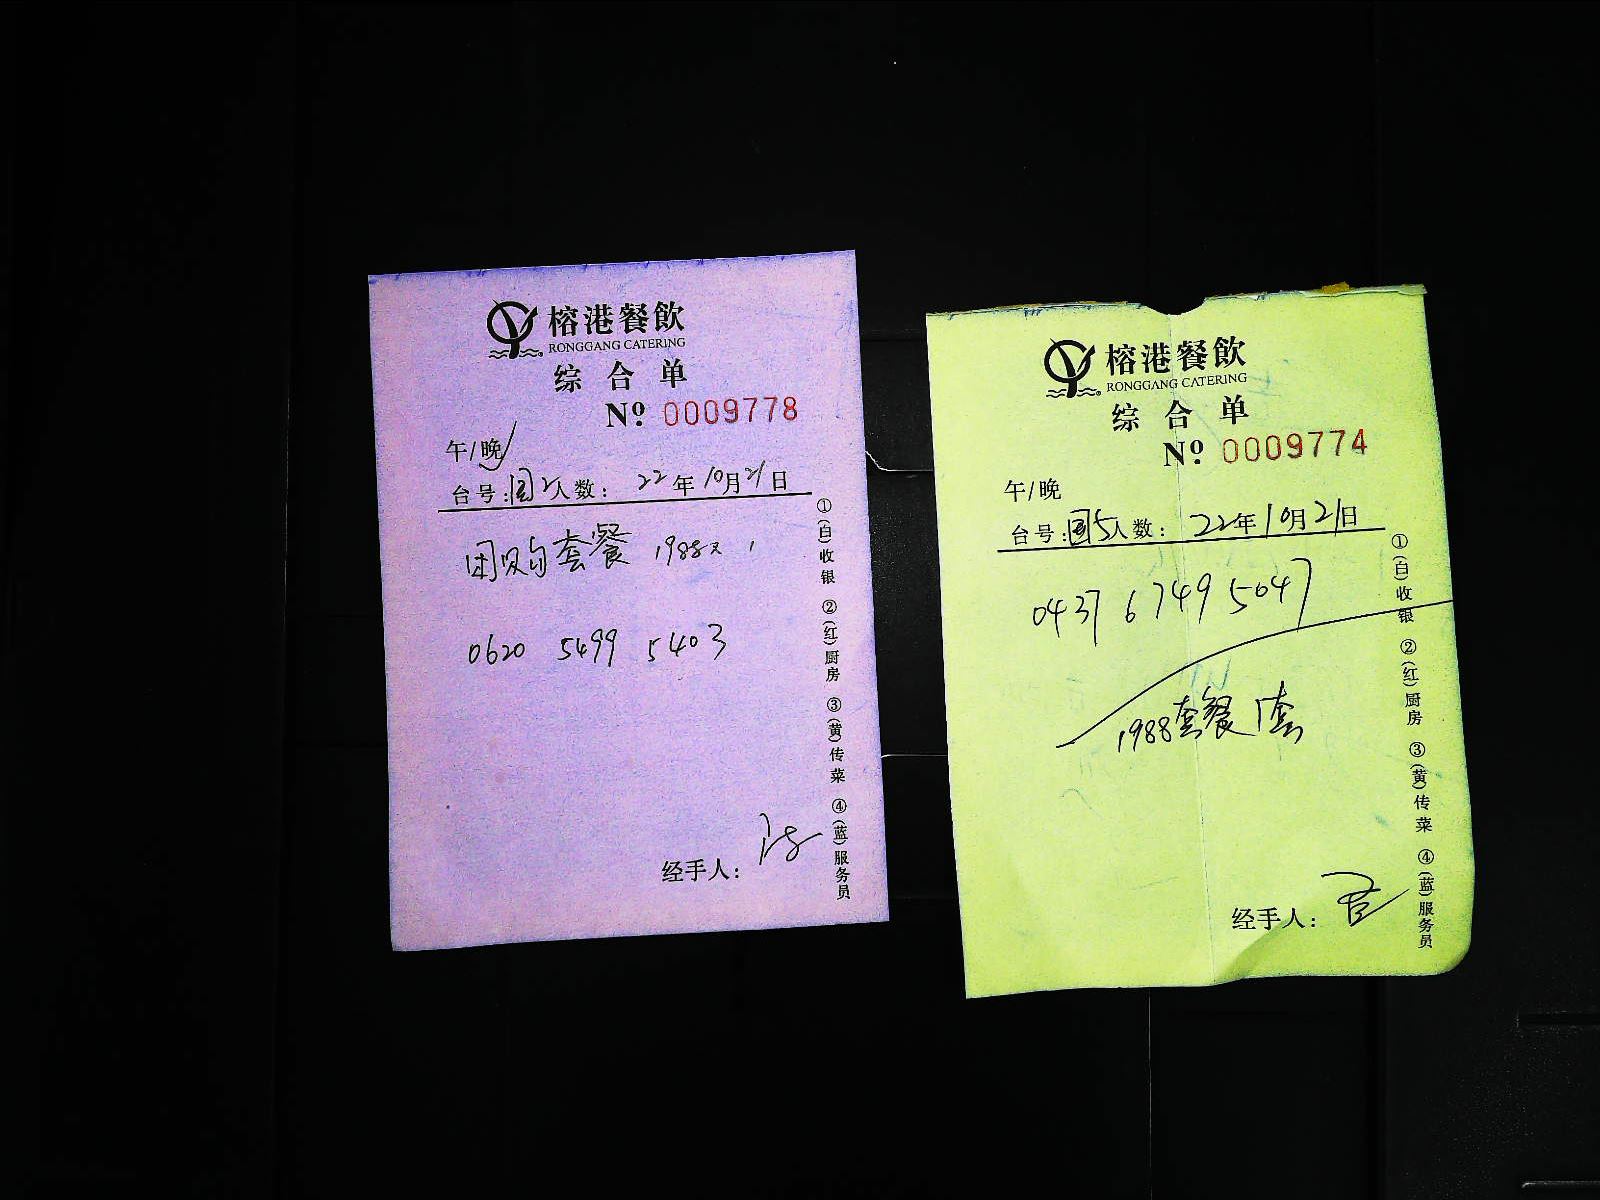 榕港餐飲
RONGGANG CATERING
综合单
Nº 0009778
午/晚
台号:国2人数: 22年10月21日
团购套餐 1988x1
0620 5499 5403
经手人:
①(白)收银 ②(红)厨房 ③(黄)传菜 ④(蓝)服务员
榕港餐飲
RONGGANG CATERING
综合单
Nº 0009774
午/晚
台号:国5人数: 22年10月21日
0437 6749 5047
1988套餐1套
经手人:
①(白)收银 ②(红)厨房 ③(黄)传菜 ④(蓝)服务员